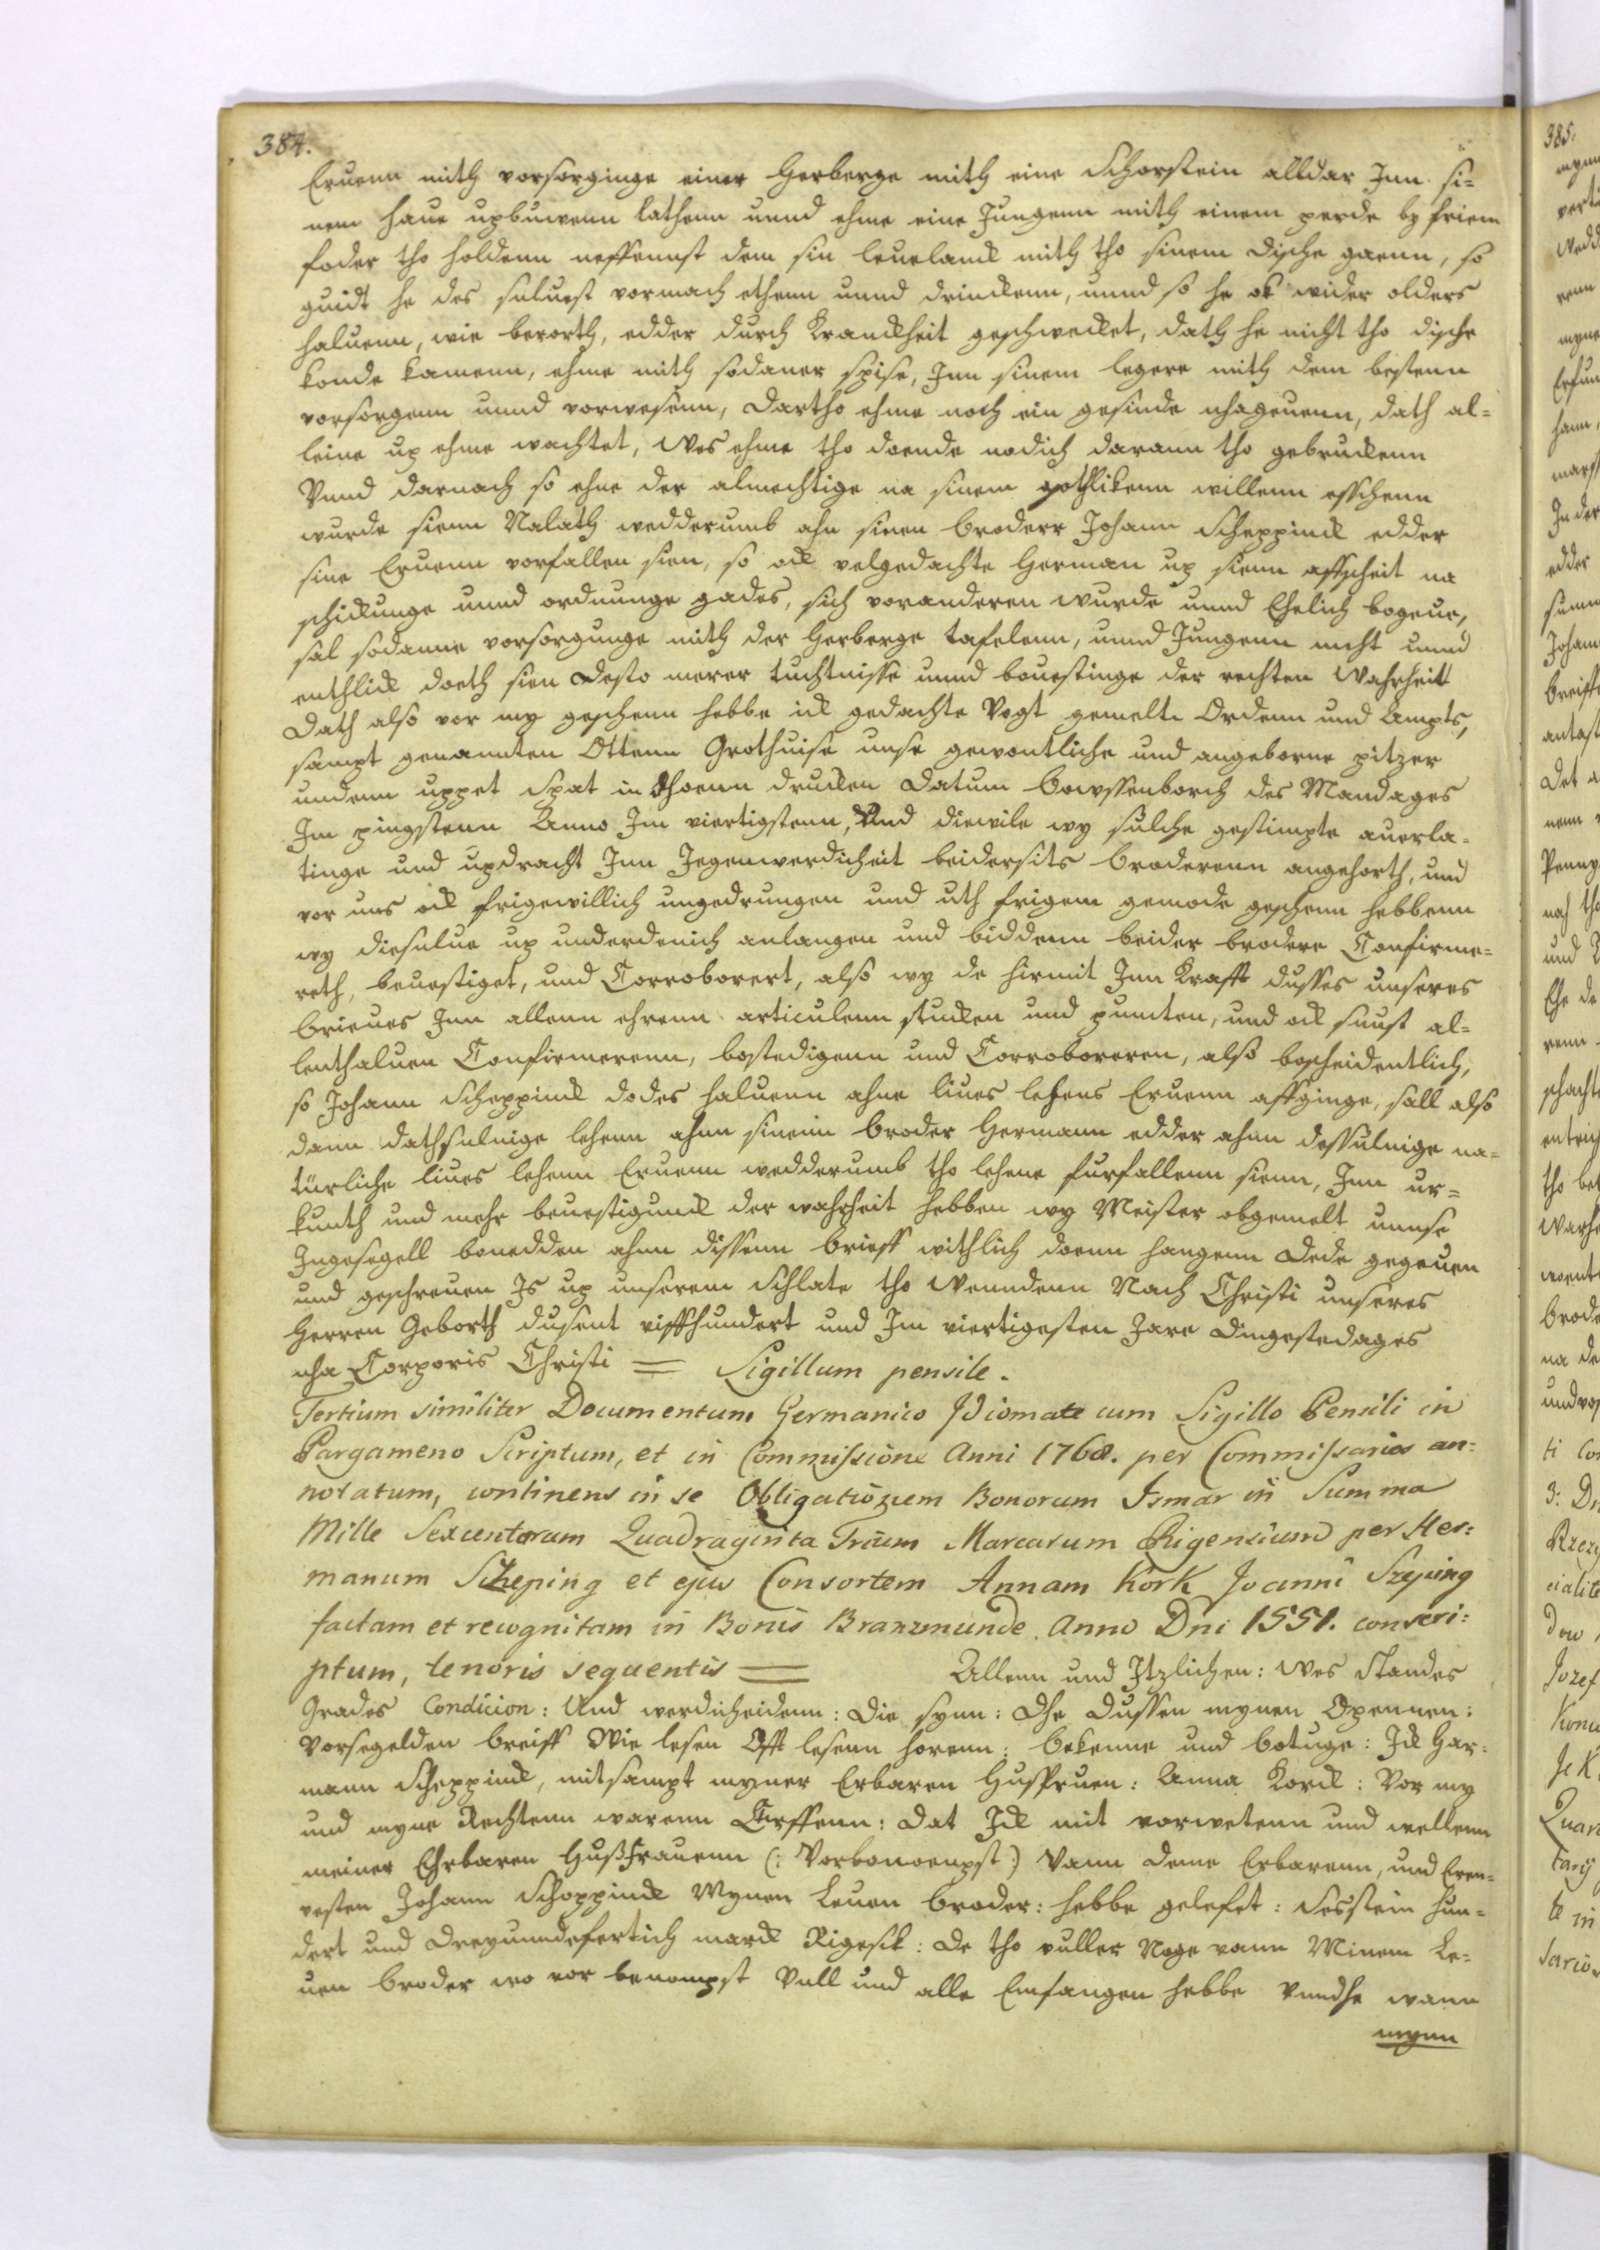 384.
Eruenn mith vorsorginge einer Herberge mith eine Schorstein alldar Jnn si=
nem haue upbuwenn lathenn unnd ehme eine Jungenn mith einem perde by friem
foder tho holdenn neffennst dem sin leuelanck mith tho sinem dische gaenn, so
guidt he des suluest vormach ethenn unnd drinckenn, unnd so he ok wider olders
haluenn, wie berorth, edder durch Kranckheit geschwecket, dath he nicht tho dische
konde kamenn, ehme mith sodaner spise, Jnn sinem legere mith dem bestenn
vorsorgenn unnd vorwesenn, dartho ehme noch ein gesinde nhageuenn, dath al=
leine up ehme wachtet, Wes ehme tho doende nodich darann tho gebruckenn
Vnnd darnach so ehne der almechtige na sinem gothlikenn willenn esschenn
wurde sienn Nalath wedderumb ahn sinen broderr Johann Scheppinck edder
sine Eruenn vorfallen sien, so ock velgedachte Herman up sienn affscheit na
schickunge unnd ordnunge gades, sich voranderen wurde unnd Ehelich begeue,
sal sodanne vorsorgunge mith der Herberge tafelenn, unnd Jungenn nicht unnd
enthlick doeth sien Desto merer tuchtnisse unnd beuestinge der rechten Wahrheit
Dath also vor my geschenn hebbe ick gedachte Vogt gemelte Ordenn und Ampts,
sampt genannten Ottenn Grothuise unse gewontliche und angeborne pitzer
undenn uppet Spat in dhoenn drucken Datum bowssenborch des Mandages
Jm pingstenn Anno Jm viertigstenn, Und diewile wy sulche gestimpte auerla=
tinge und updracht Jnn Jegenwerdicheit beidersits broderenn angehorth, und
vor uns ock frigewillich ungedrungen und uth frigem gemode geschenn hebbenn
wy diesulue up underdenich anlangen und biddenn beider brodere Confirme=
reth, beuestiget, und Corroborert, also wy de hirmit Jnn Krafft dusses unseres
brieues Jnn allenn ehrenn articulenn stucken und puncten, und ock sunst al=
lenthaluen Confirmerenn, bestedigenn und Corroboreren, also bescheidentlich,
so Johann Scheppinck dodes haluenn ahne liues lehens Eruenn affginge, sall also
dann dathsulnige lehenn ahnn sinenn broder Hermann edder ahnn dessulnige na=
türliche liues lehenn Eruenn wedderumb tho lehene furfallenn sienn, Jnn ur=
kunth und mehr beuestigunck der wahrheit hebben wy Meister obgemelt unnse
Jngesegell benedden ahnn dissenn brieff withlich doenn hangenn Dede gegeuen
und geschreuen Js up unserem Schlate tho Wenndenn Nach Christi unseres
Herren Geborth dusent viffhundert und Jm viertigesten Jare dingestedages
nha Corporis Christi = Sigillum pensile.
Tertium similiter Documentum Germanico Jdiomate cum Sigillo Pensili in
Pargameno Scriptum, et in Commissione Anni 1768. per Commissarios an=
notatum, continens in se Obligationem Bonorum Jsmar in Summa
Mille Sexcentorum Quadraginta Trium Marcarum Rigensium per Her=
manum Szeping et ejus Consortem Annam Kork Joanni Szeping
factam et recognitam in Bonis Branzmunde Anno Dni 1551. conscri=
ptum, tenoris sequentis = Allenn und Jtzlichen: Wes Standes
Grades Condicion: Und werdicheidenn: Die synn: Dhe Dussen mynen Opennen:
Vorsegelden breiff Wie lesen Offt lesenn horenn: bekenne und betuge: Jck Har=
mann Scheppinck, mitsampt myner Erbaren Husfruen: Anna Korck: Vor my
und myne Rechtenn warenn Erffenn: Dat Jck mit vorwetenn und wellenn
meiner Ehrbaren Hußfrauenn (: Vorbenoempst:) Vann deme Erbarenn, und Eren=
vesten Johann Schoppinck Mynen Leuen broder: hebbe gelefet: Sesstein hun=
dert und dreyunndefertich marck Rigesck: De tho vuller Noge vann Minem Le=
uen broder wo vor benompst Vull und alle Emfangen hebbe vnndhe wann
mynn